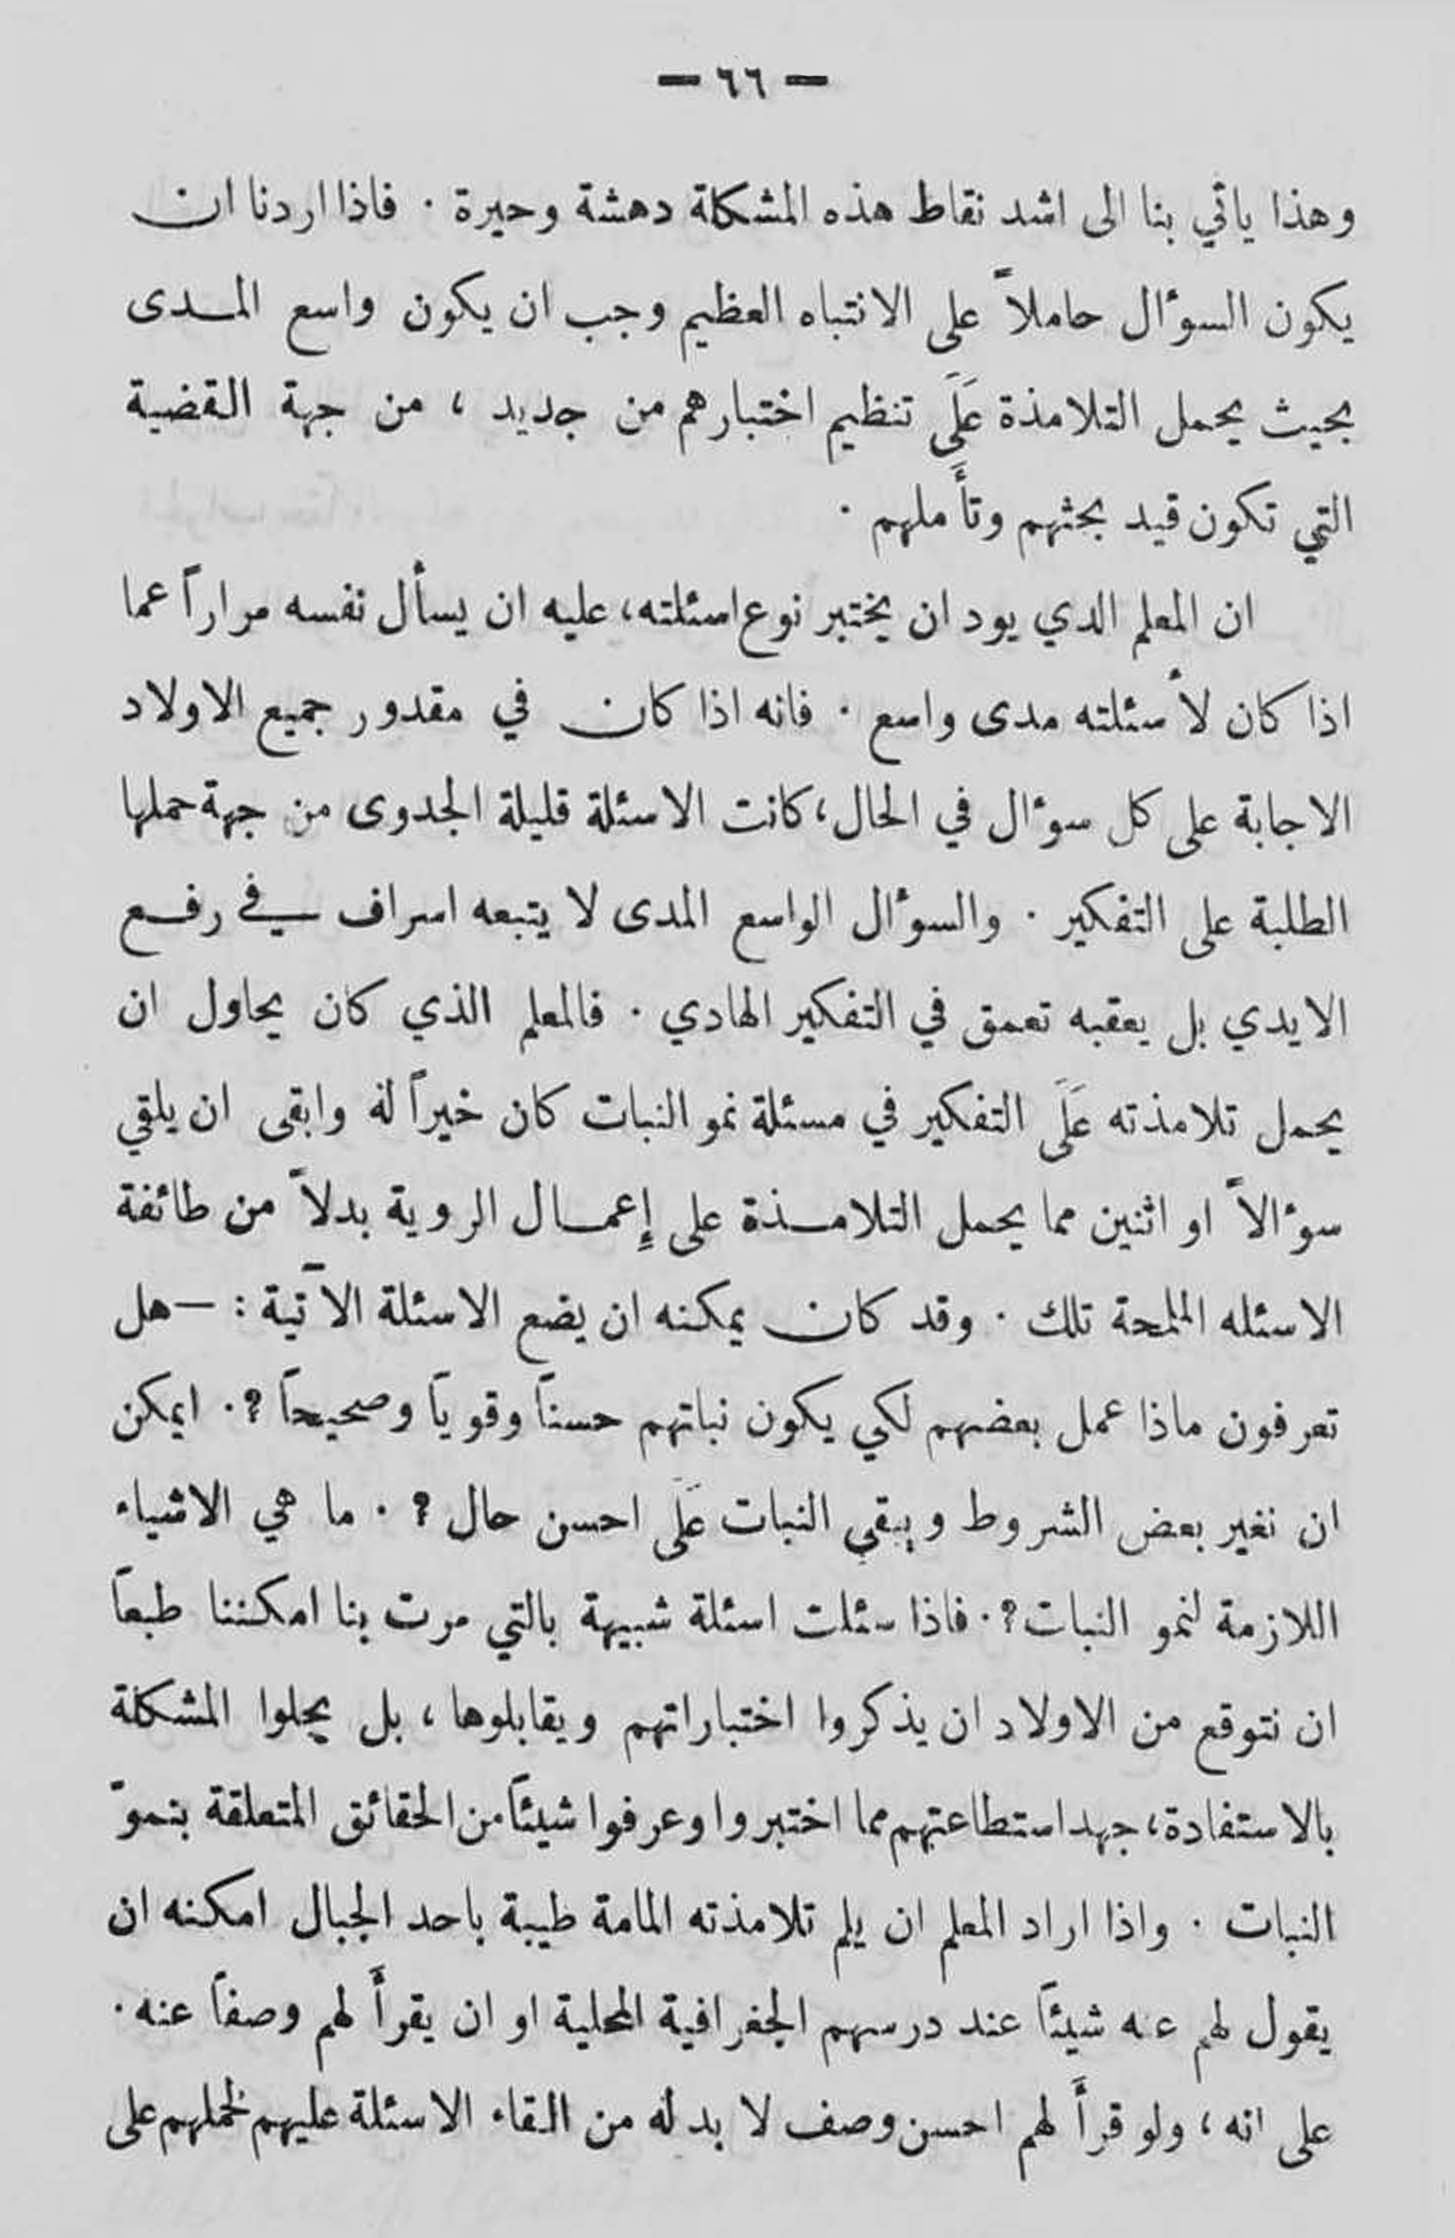 — ٦٦ —
وهذا ياتي بنا الى اشد نقاط هذه المشكلة دهشة وحيرة . فاذا اردنا ان
يكون السوٴال حاملاً على الانتباه العظيم وجب ان يكون واسع المدى
بحيث يحمل التلامذة عَلَى تنظيم اختبارهم من جديد ، من جهة القضية
التي تكون قيد بحثهم وتأَملهم .
ان المعلم الدي يود ان يختبر نوع اسئلته، عليه ان يسأل نفسه مراراً عما
اذا كان لأسئلته مدى واسع . فانه اذا كان في مقدور جميع الاولاد
الاجابة على كل سوٴال في الحال، كانت الاسئلة قليلة الجدوى من جهة حملها
الطلبة على التفكير . والسوٴال الواسع المدى لا يتبعه اسراف في رفع
الايدي بل يعقبه تعمق في التفكير الهادي . فالمعلم الذي كان يحاول ان
يحمل تلامذته عَلَى التفكير في مسئلة نمو النبات كان خيراً له وابقى ان يلقي
سوٴالاً او اثنين مما يحمل التلامذة على إِعمال الروية بدلاً من طائفة
الاسئله الملحة تلك . وقد كان يمكنه ان يضع الاسئلة الآتية : — هل
تعرفون ماذا عمل بعضهم لكي يكون نباتهم حسناً وقوياً وصحيحاً ؟. ايمكن
ان نغير بعض الشروط ويبقى النبات عَلَى احسن حال ؟ . ما هي الاشياء
اللازمة لنمو النبات ؟. فاذا سئلت اسئلة شبيهة بالتي مرت بنا امكننا طبعاً
ان نتوقع من الاولاد ان يذكروا اختباراتهم ويقابلوها ، بل يحلوا المشكلة
بالاستفادة، جهد استطاعتهم مما اختبروا وعرفوا شيئاً من الحقائق المتعلقة بنموّ
النبات . واذا اراد المعلم ان يلم تلامذته المامة طيبة باحد الجبال امكنه ان
يقول لهم عنه شيئاً عند درسهم الجغرافية المحلية او ان يقرأَ لهم وصفاً عنه .
على انه ، ولو قرأَ لهم احسن وصف لا بد له من القاء الاسئلة عليهم لحملهم على